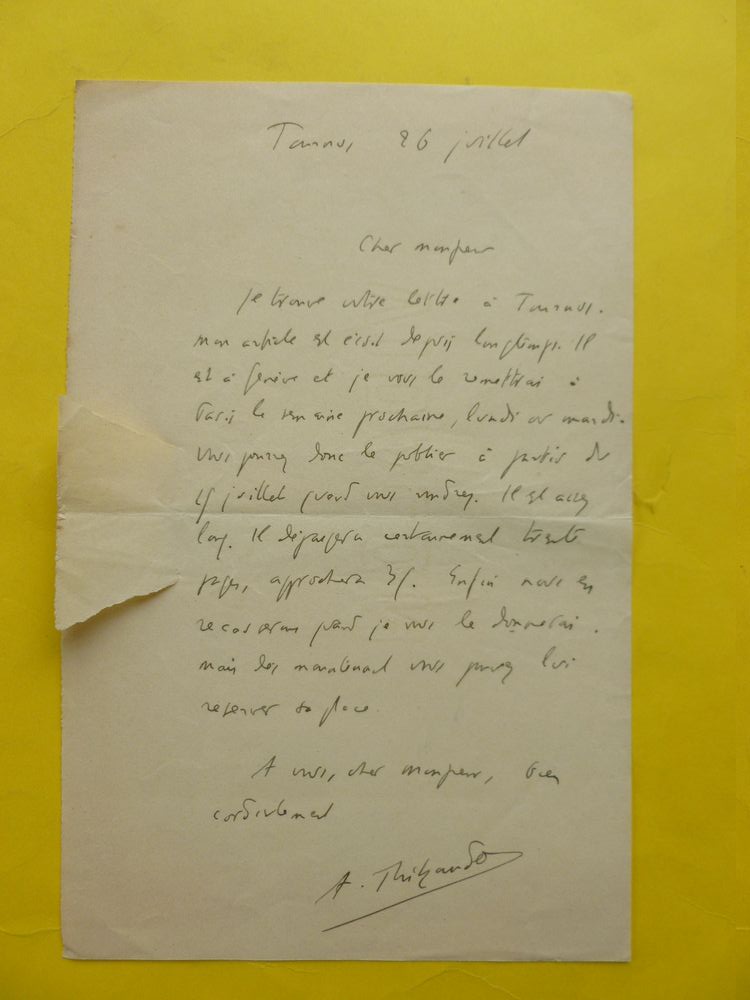 Tournus, 26 juillet
Cher monsieur
Je trouve votre lettre à Tournus.
mon article est écrit depuis longtemps. Il
est à Genève et je vous le remettrai à
Paris la semaine prochaine, lundi ou mardi.
vous pourrez donc le publier à partir du
15 juillet quand vous voudrez. Il est assez
long. Il dépassera certainement trente
pages, approchera 35. Enfin nous en
recauserons quand je vous le donnerai.
mais dès maintenant vous pouvez lui
reserver sa place.
A vous, cher monsieur, bien
cordialement
A. Thibaudet